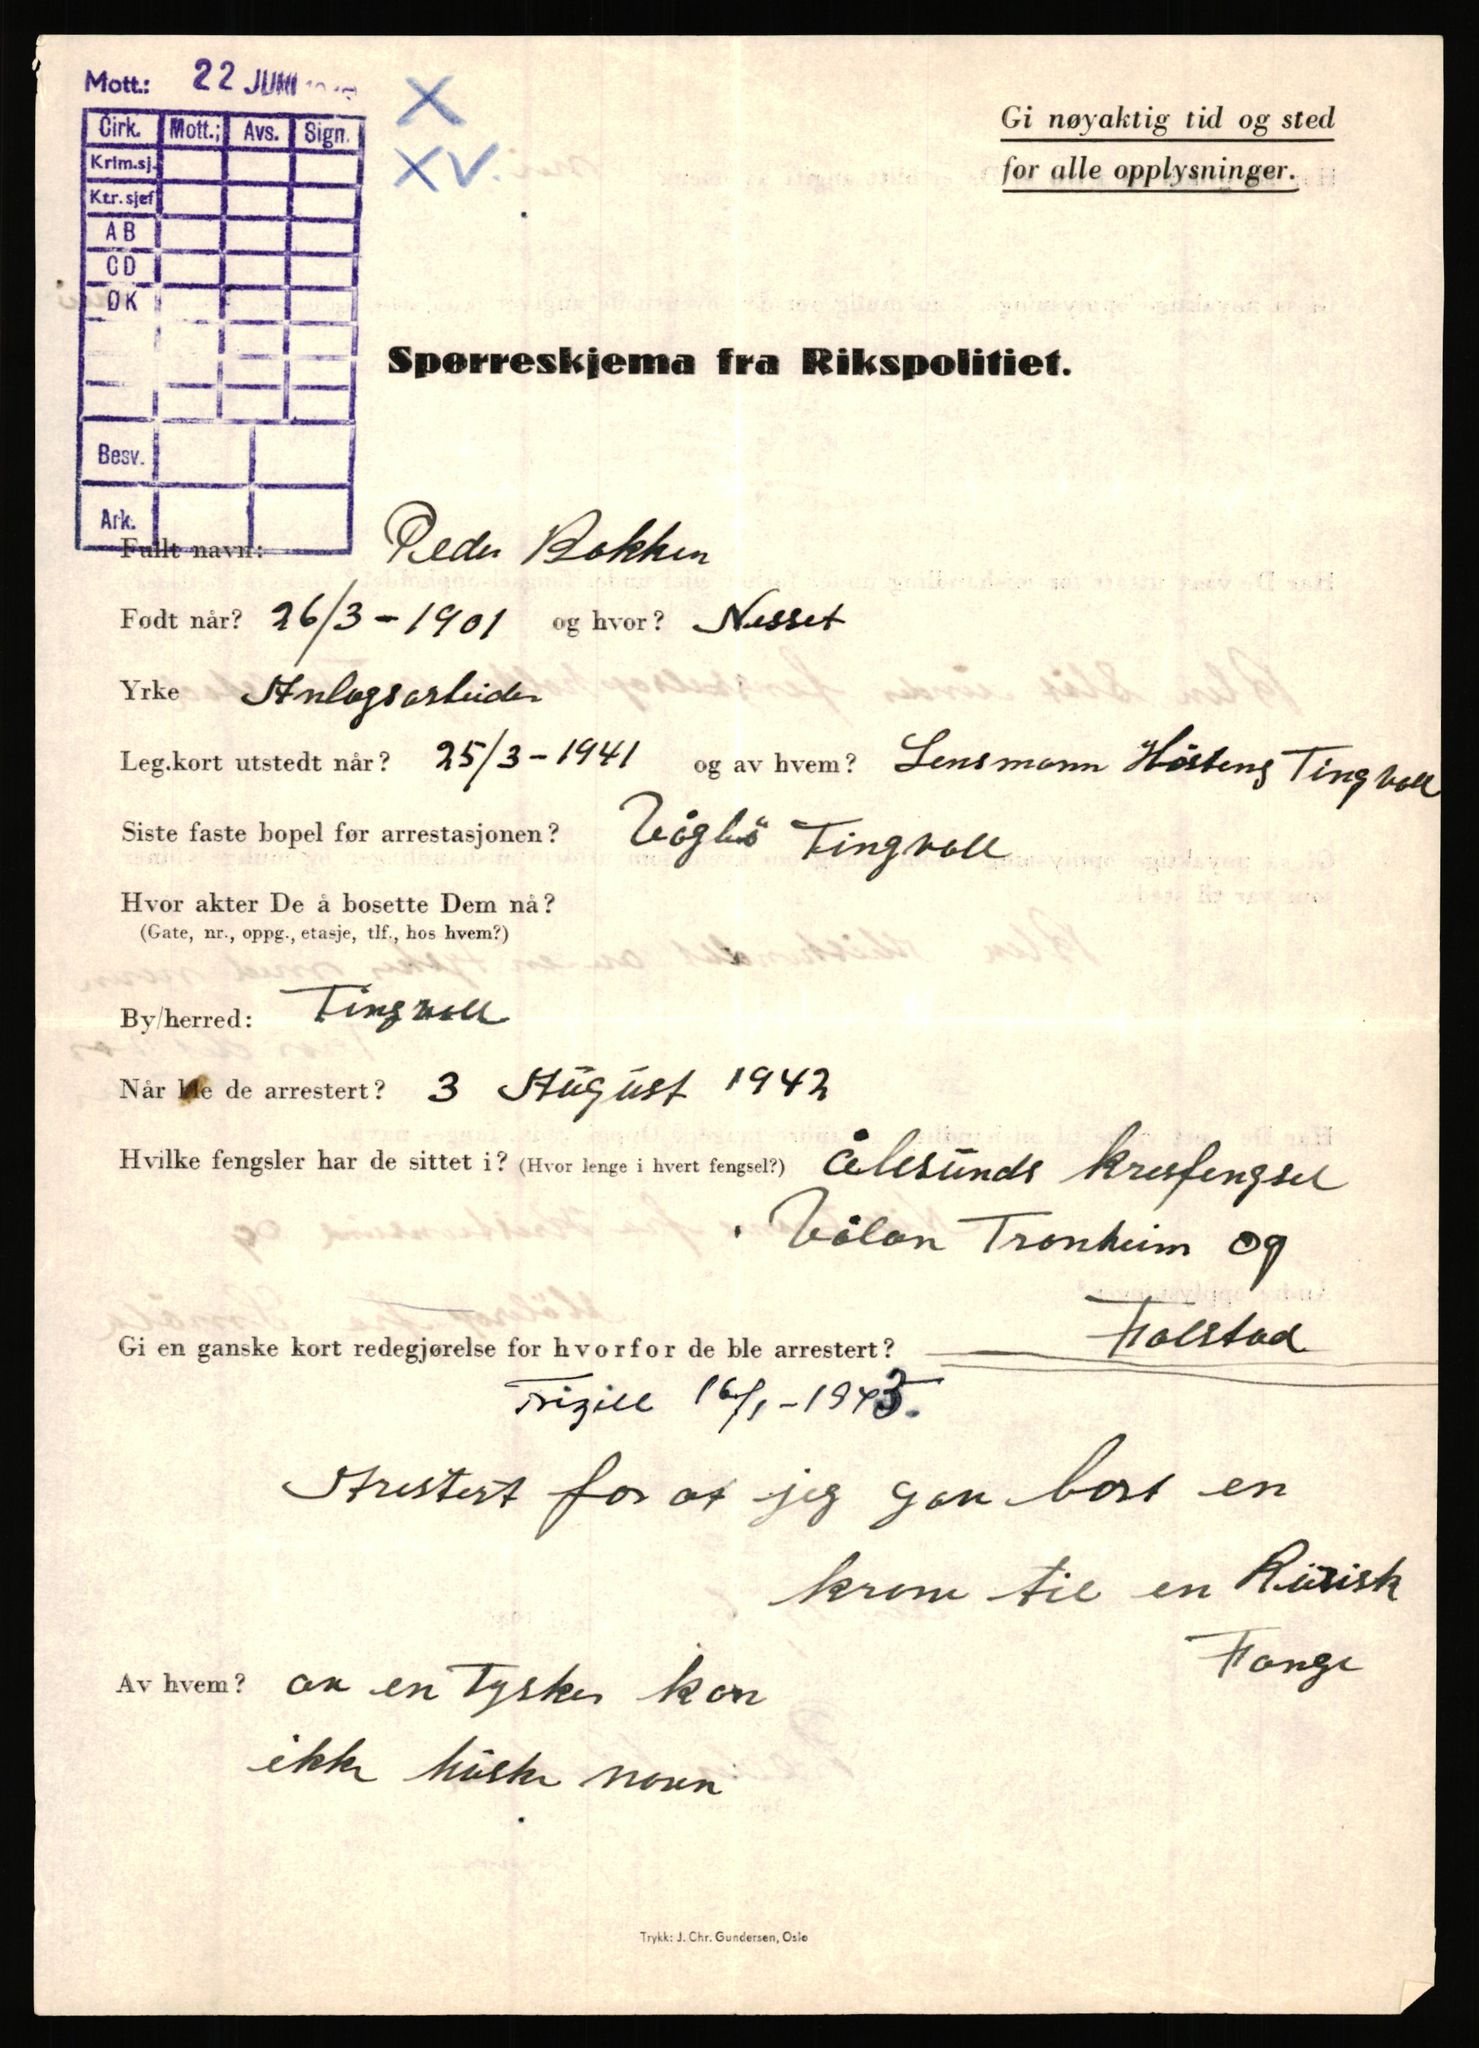 Mott.: 22 JUNI
Cirk. Mott.; Avs. Sign.
Krim.sj.
Ktr.sjef
AB
CD
ØK
Besv.
Ark.
X
XV.
Gi nøyaktig tid og sted
for alle opplysninger.
Spørreskjema fra Rikspolitiet.
Fullt navn: Peder Bakken
Født når? 26/3-1901 og hvor? Nesset
Yrke Anlagsarbeider
Leg.kort utstedt når? 25/3-1941 og av hvem? Lensmann Høstens Tingvoll
Siste faste bopel før arrestasjonen? Vågbø Tingvoll
Hvor akter De å bosette Dem nå?
(Gate, nr., oppg., etasje, tlf., hos hvem?)
By/herred: Tingvoll
Når ble de arrestert? 3 August 1942
Hvilke fengsler har de sittet i? (Hvor lenge i hvert fengsel?) Ålesunds kresfengsel
Vålan Tronheim og
Falstad
Gi en ganske kort redegjørelse for hvorfor de ble arrestert?
16/1-1943.
Arestert for at jeg gav bort en
krone til en Rüsisk
Fange
Av hvem? av en Tysker kan
ikke huske navn
Trykk: J. Chr. Gundersen, Oslo